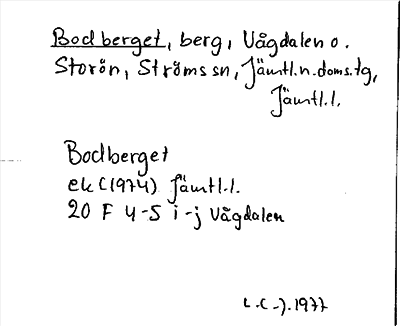 Bodberget, berg, Vågdalen o.
Storön, Ströms sn, Jämtl.n.doms.tg,
Jämtl.l.
Bodberget
ek (1974) Jämtl.l.
20 F 4-5 i-j Vågdalen
L.C-).1977